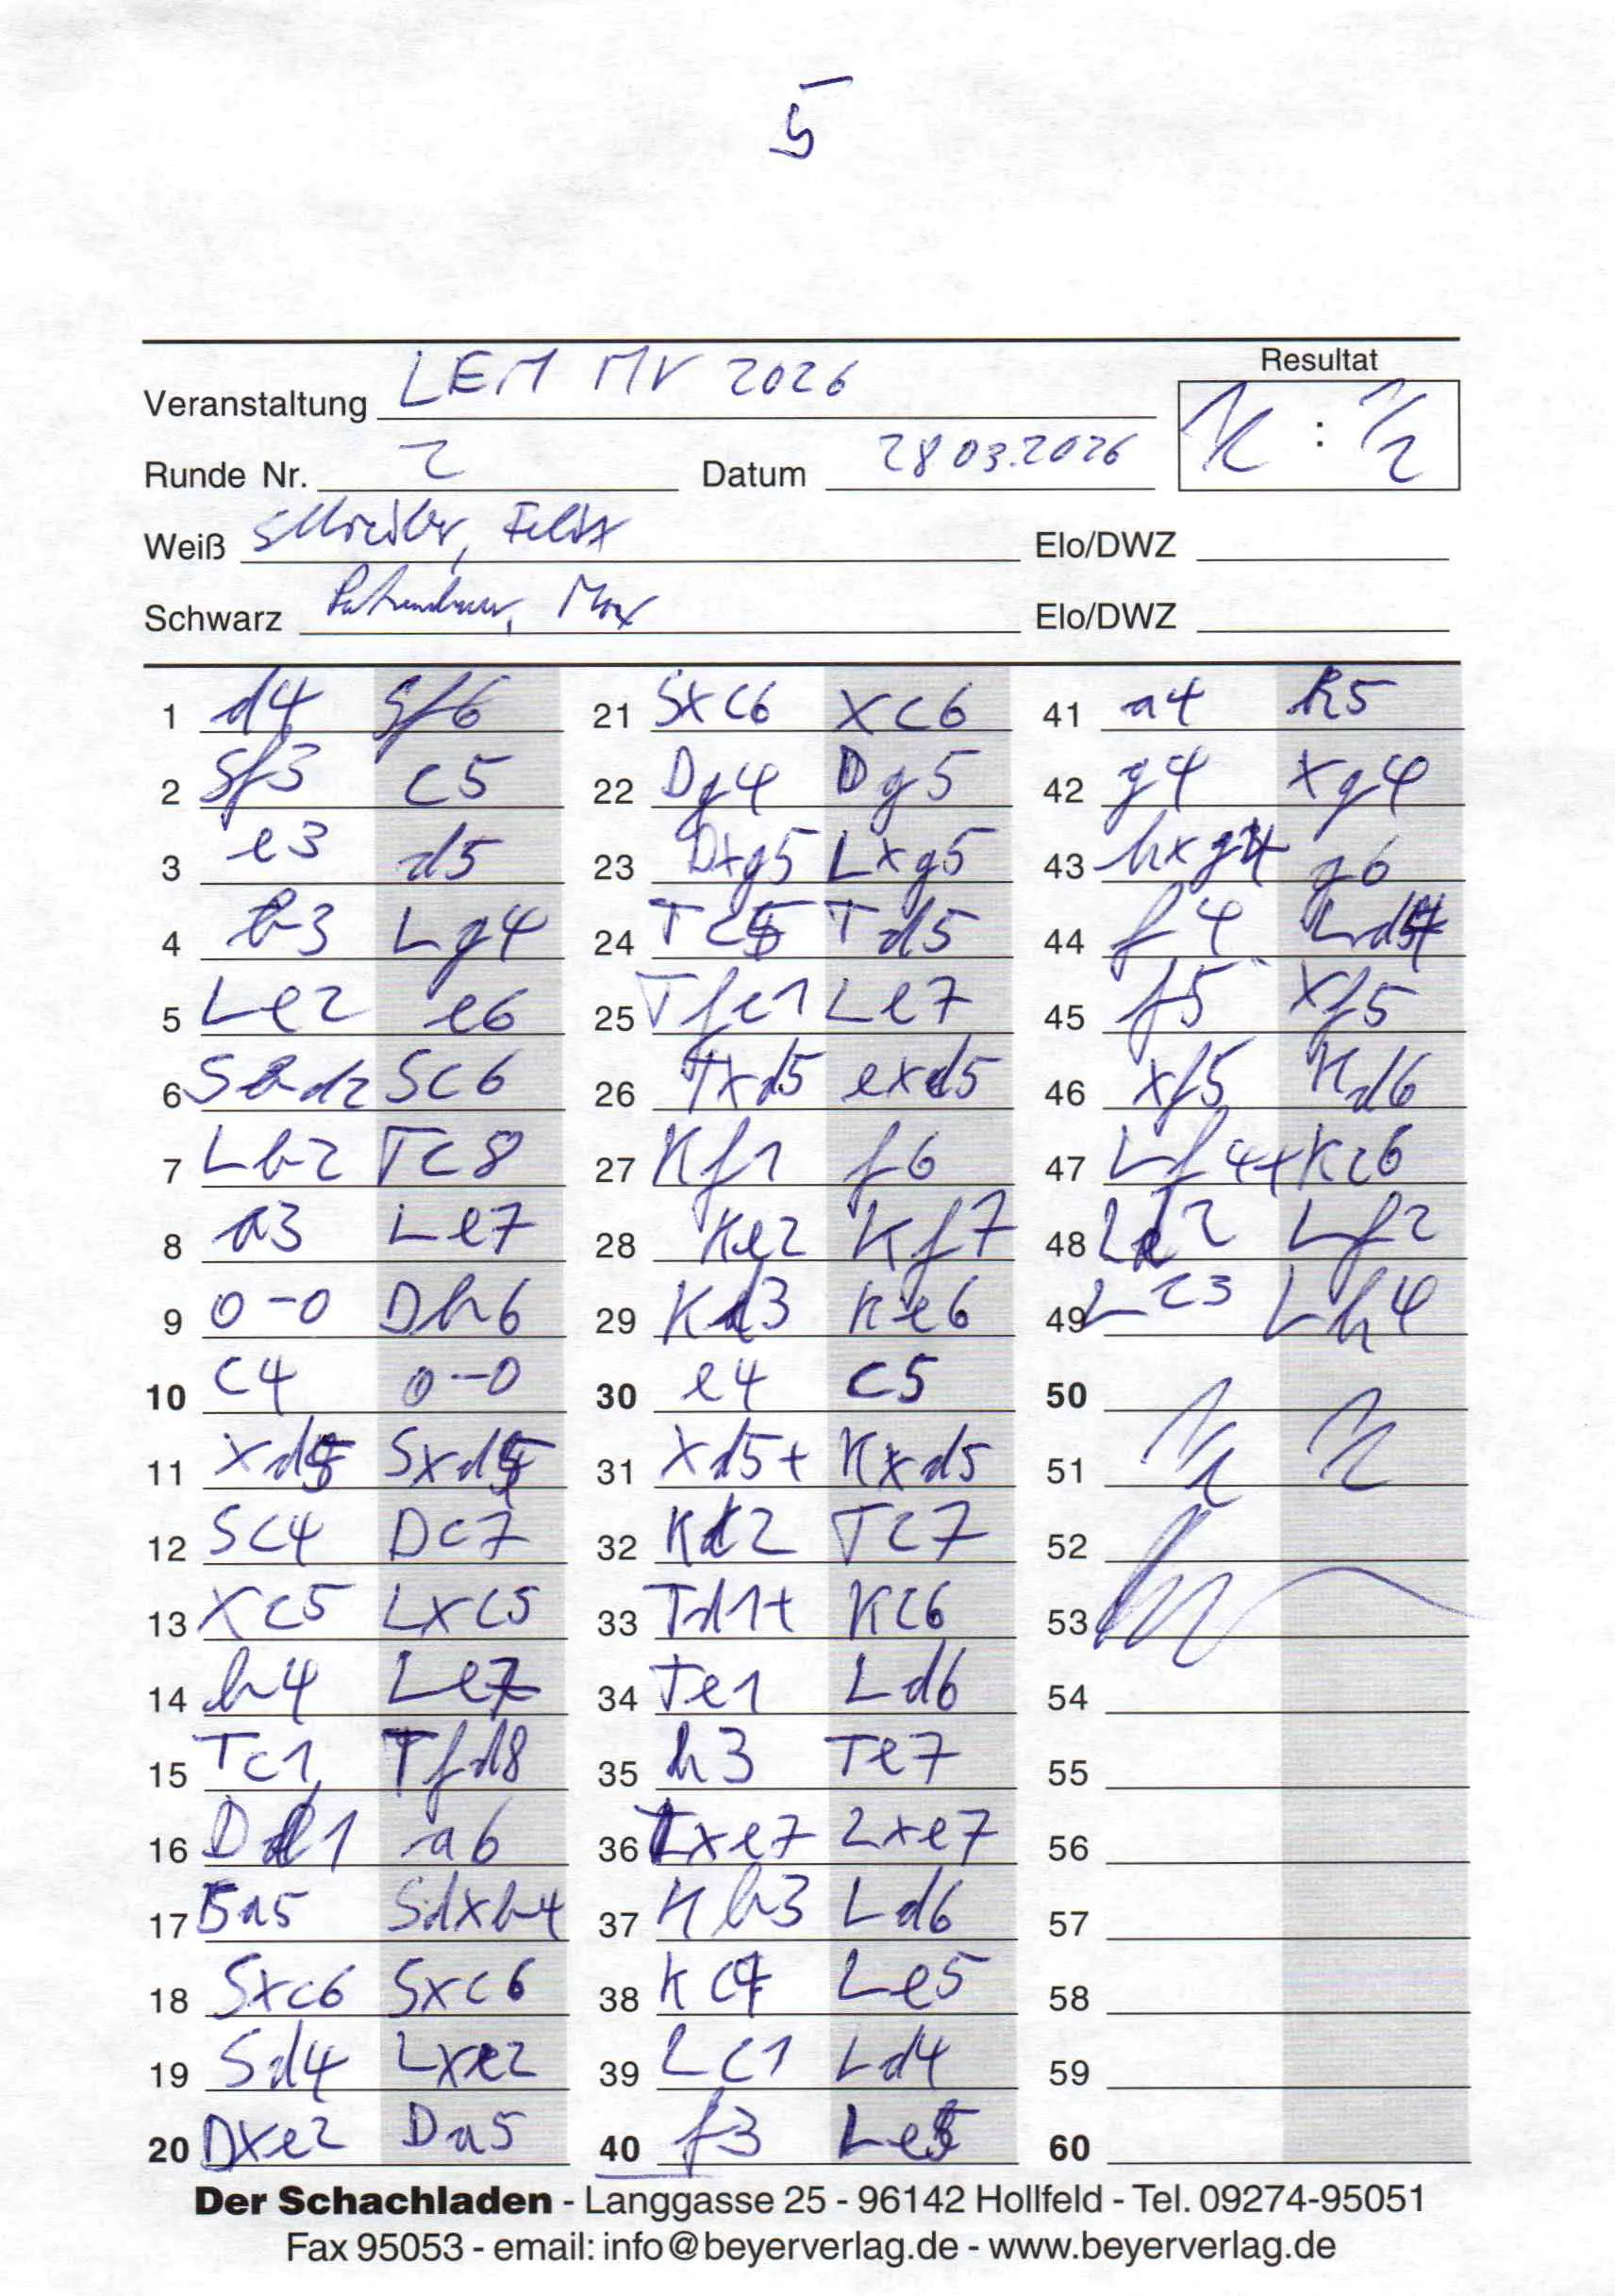 5
Resultat
Veranstaltung LEM MV 2026
½ : ½
Runde Nr. 2 Datum 28 03.2026
Weiß Felix Elo/DWZ
Schwarz Max Elo/DWZ
1 d4 Sf6
2 Sf3 c5
3 e3 d5
4 b3 Lg4
5 Le2 e6
6 Sbd2 Sc6
7 Lb2 Tc8
8 a3 Le7
9 0-0 Db6
10 c4 0-0
11 xd5 Sxd5
12 Sc4 Dc7
13 xc5 Lxc5
14 b4 Le7
15 Tc1 Tfd8
16 De1 a6
17 Sa5 Sdxb4
18 Sxc6 Sxc6
19 Sd4 Lxe2
20 Dxe2 Da5
21 Sxc6 xc6
22 Dg4 Dg5
23 Dxg5 Lxg5
24 Tc5 Td5
25 Tfc1 Le7
26 Txd5 exd5
27 Kf1 f6
28 Ke2 Kf7
29 Kd3 Ke6
30 e4 c5
31 xd5+ Kxd5
32 Kc2 Tc7
33 Td1+ Kc6
34 Te1 Ld6
35 h3 Te7
36 Txe7 Lxe7
37 Kb3 Ld6
38 Kc4 Le5
39 Lc1 Ld4
40 f3 Le5
41 a4 h5
42 g4 xg4
43 hxg4 g6
44 f4 Ld4
45 f5 xf5
46 xf5 Kd6
47 Lf4+ Kc6
48 Ld2 Lf2
49 Lc3 Lh4
50
51 ½ ½
52
53
54
55
56
57
58
59
60
Der Schachladen - Langgasse 25 - 96142 Hollfeld - Tel. 09274-95051
Fax 95053 - email: info@beyerverlag.de - www.beyerverlag.de